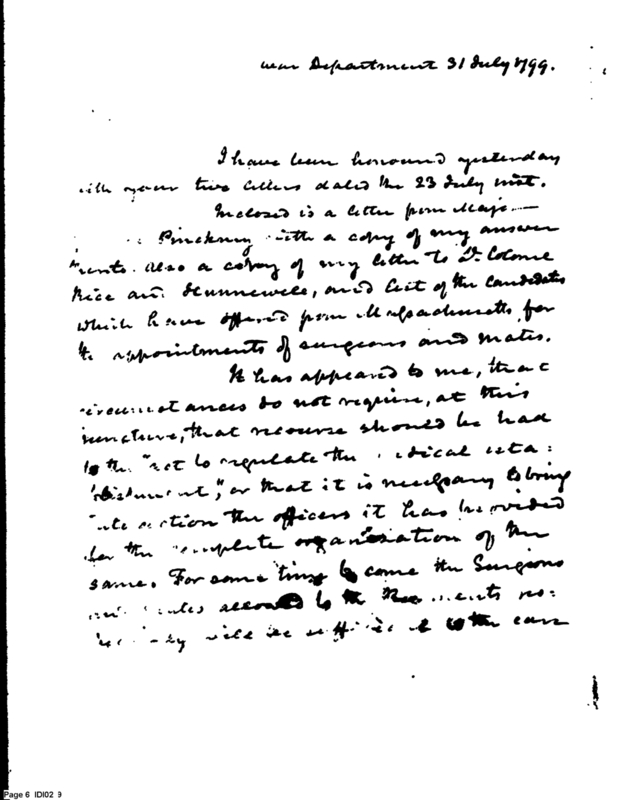 War Department 31 July 1799.
I have been honoured yesterday
with your two letters dated the 23 July inst.
Inclosed is a letter from Major
Pinckney with a copy of my answer
Also a copy of my letter to Lt. Colonels
Rice and Hunnewell, and list of the candidates
which have offered from Massachusetts, for
the appointments of surgeons and mates.
It has appeared to me, that
circumstances do not require, at this
juncture, that recourse should be had
to the "act to regulate the medical esta=
blishment," or that it is necessary to bring
into action the officers it has provided
for the complete organization of the
same. For some time to come the Surgeons
and mates allowed to the Regiments re=
will be sufficient to the care
Page 6 IDI02 9